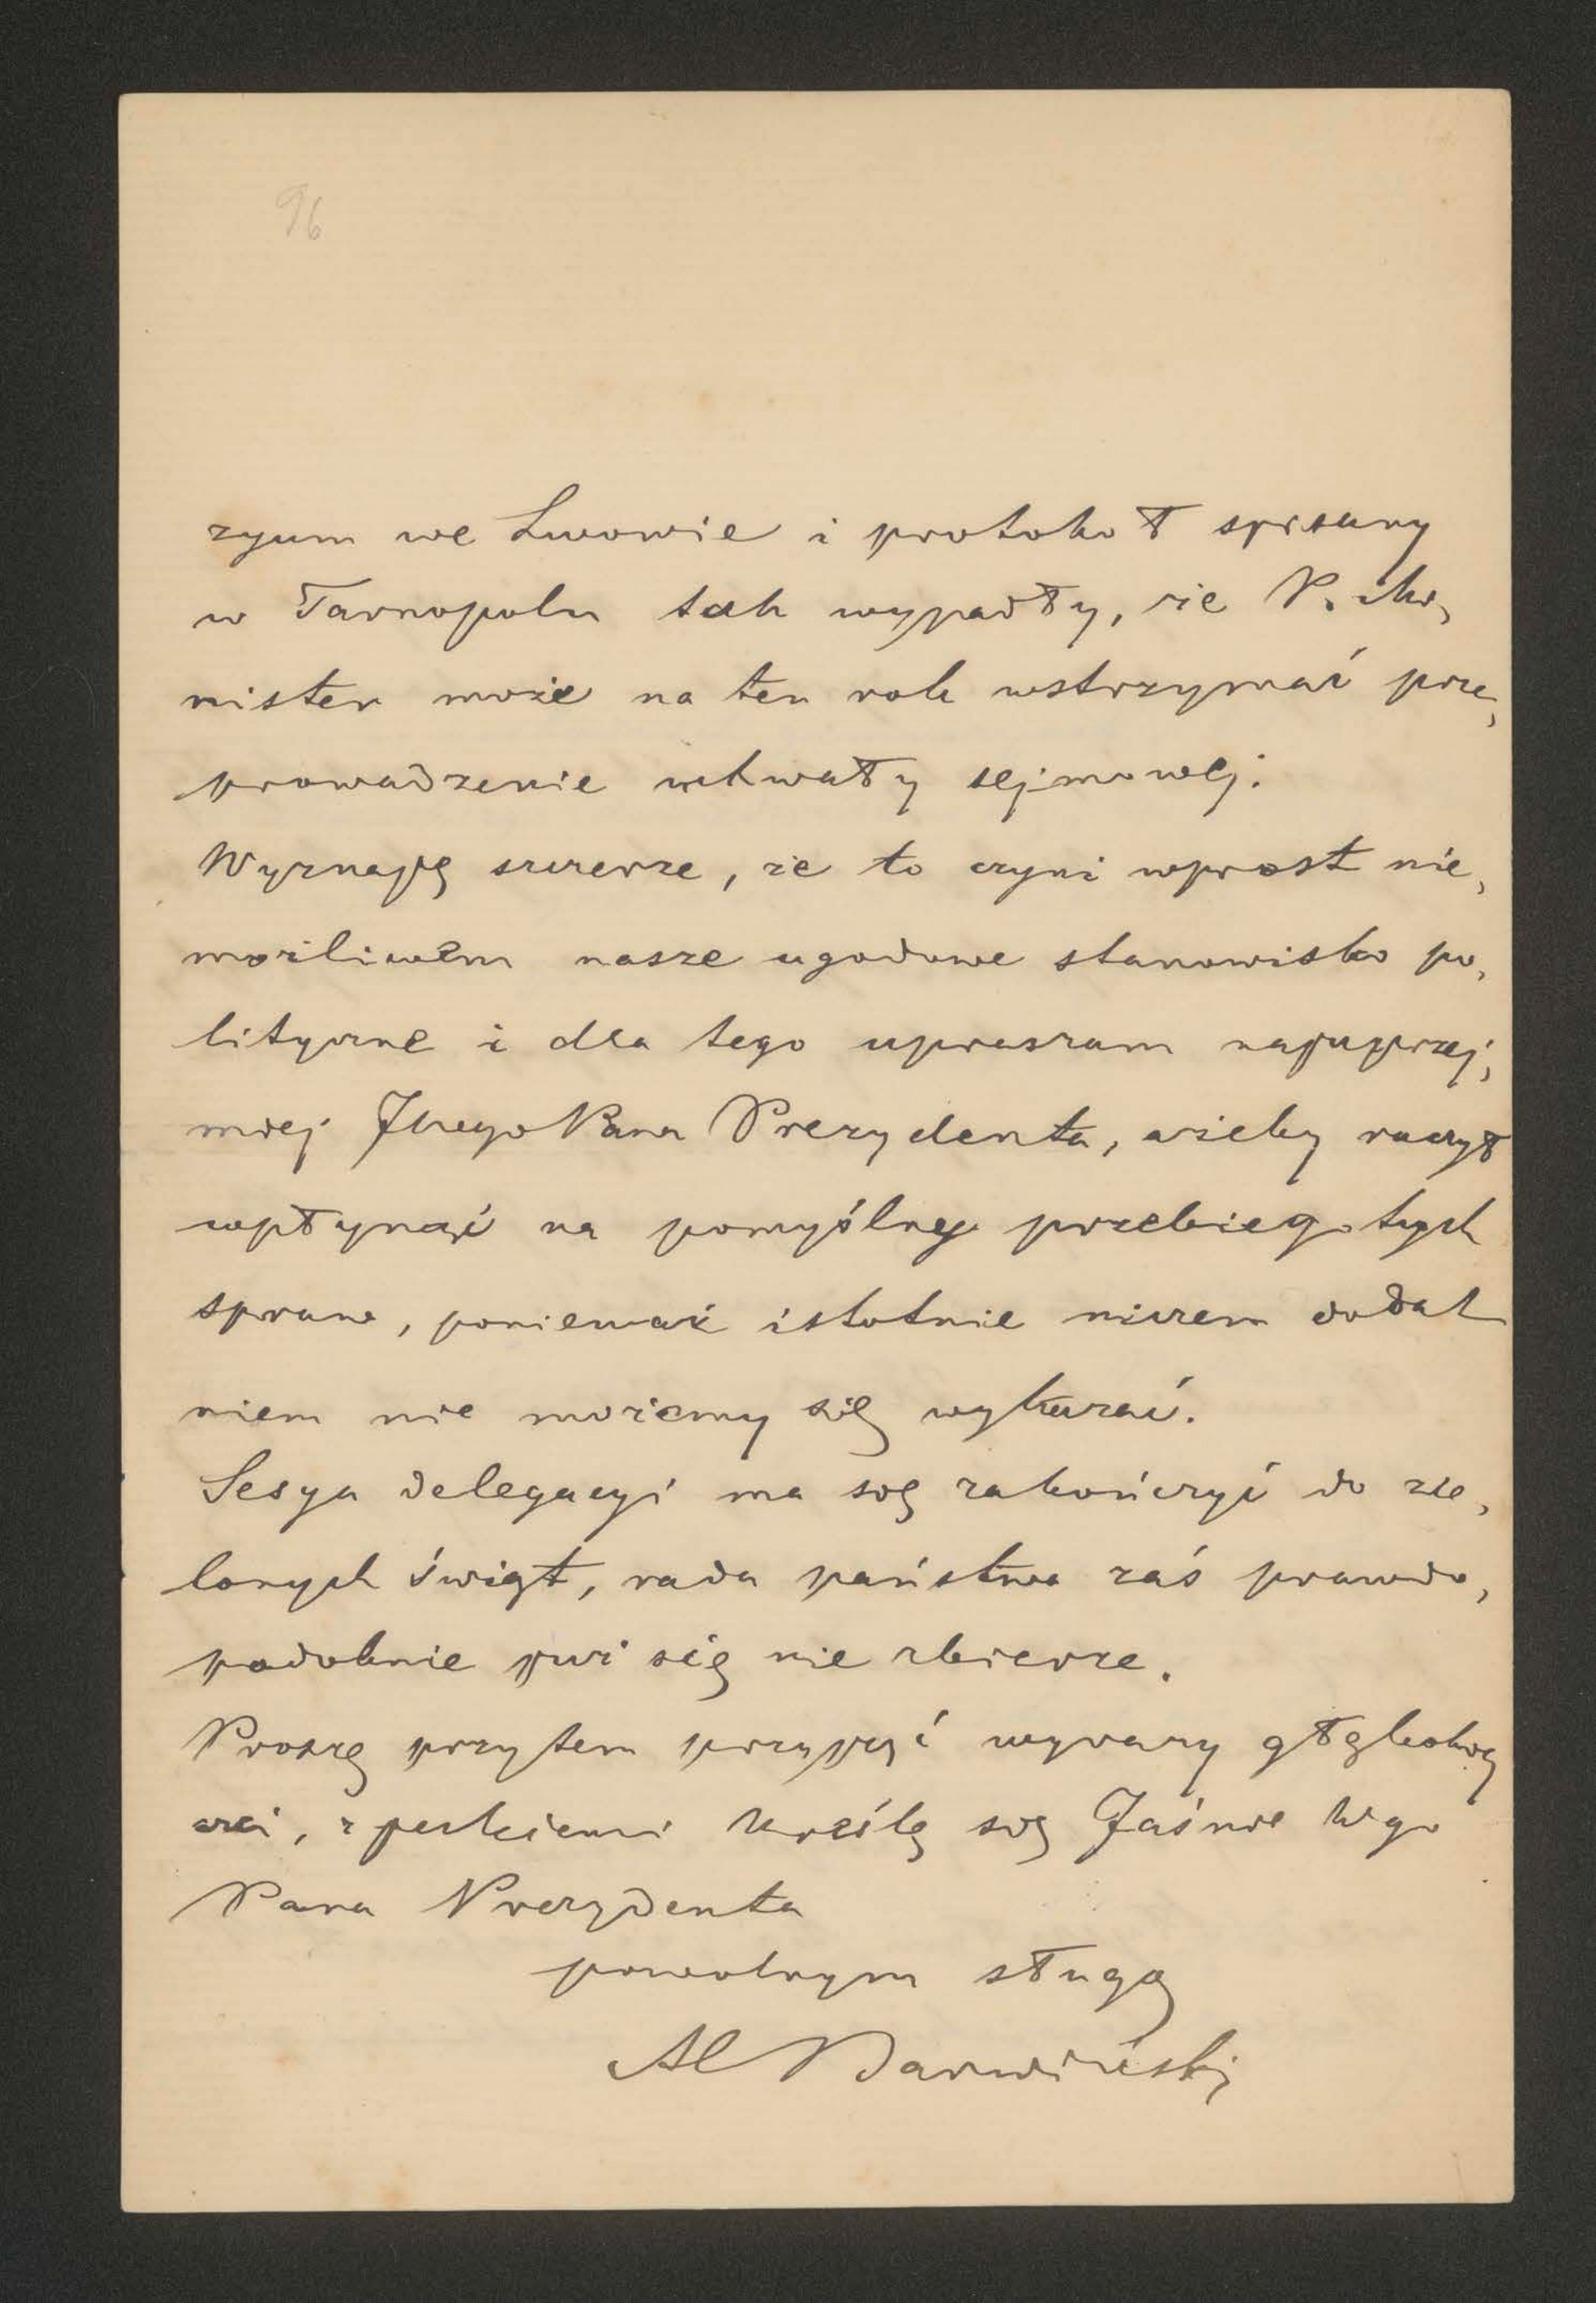 96
zyum we Lwowie i protokoł spisany
w Tarnopolu tak wypadły, że P.
nister może na ten rok wstrzymać prze,
prowadzenie uchwały sejmowej.
Wyznaję szczerze, że to czyni wprost nie,
możliwem nasze ugodowe stanowisko po,
lityczne i dla tego upraszam najuprzej,
miej Pana Prezydenta, ażeby raczył
wpłynąć na pomyślny przebieg tych
spraw, ponieważ istotnie niczem dodat
niem nie możemy się wykazać.
Sesya delegacyi ma się zakończyć do zie,
lonych świąt, rada państwa zaś prawdo,
podobnie już się nie zbierze.
Proszę przytem przyjąć wyrazy głębokiej
czci, z jakiemi kreślę się Jaśnie Wgo
Pana Prezydenta
powolnym sługą
Al Barwiński